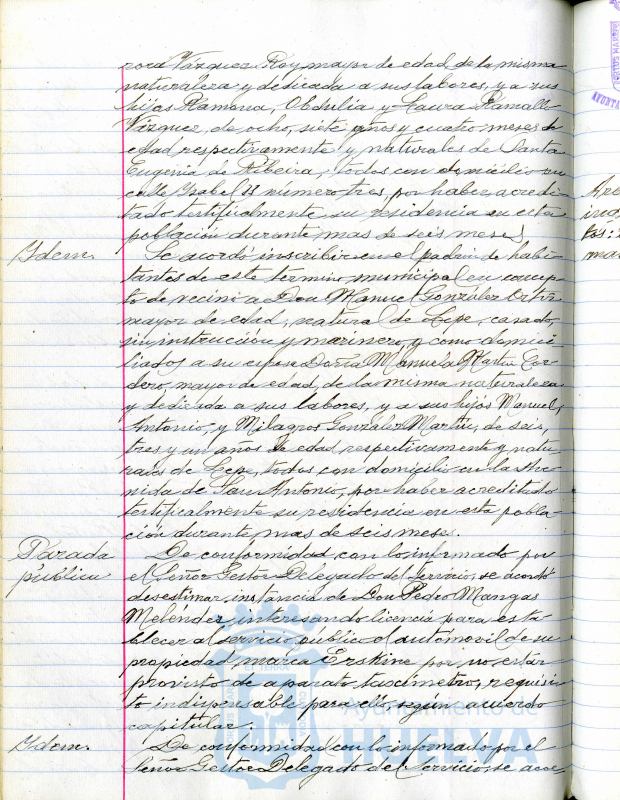 Vázquez Roy mayor de edad, de la misma
naturaleza y dedicada a sus labores, y a sus
hijos Ramona, Obdulia y Laura Ramallo
Vázquez, de ocho, siete años y cuatro meses de
edad respectivamente y naturales de Santa
Eugenia de Ribeira, todos con domicilio en
calle Ysabel II número tres, por haber acredi-
tado testificalmente su residencia en esta
población durante mas de seis meses.
Ydem.
Se acordó inscribir en el padrón de habi-
tantes de este término municipal en concep-
to de vecino a Don Manuel González Ortiz
mayor de edad, natural de Lepe, casado,
sin instrucción y marinero, y como domici-
liados a su esposa Doña Manuela Martín Cor-
dero, mayor de edad, de la misma naturaleza
y dedicada a sus labores, y a sus hijos Manuel,
Antonio, y Milagros González Martín, de seis,
tres y un años de edad respectivamente y natu-
rales de Lepe, todos con domicilio en la Ave-
nida de San Antonio, por haber acreditado
testificalmente su residencia en esta pobla-
ción durante mas de seis meses.
Parada
pública
De conformidad con lo informado por
el Señor Gestor Delegado del Servicio, se acordó
desestimar instancia de Don Pedro Mangas
Meléndez interesando licencia para esta-
blecer al servicio público el automovil de su
propiedad marca Erskine por no estar
provisto de aparato taxímetro, requisi-
to indispensable para ello, según acuerdo
capitular.
Ydem.
De conformidad con lo informado por el
Señor Gestor Delegado del Servicio, se acor
Ayuntamiento de
HUELVA